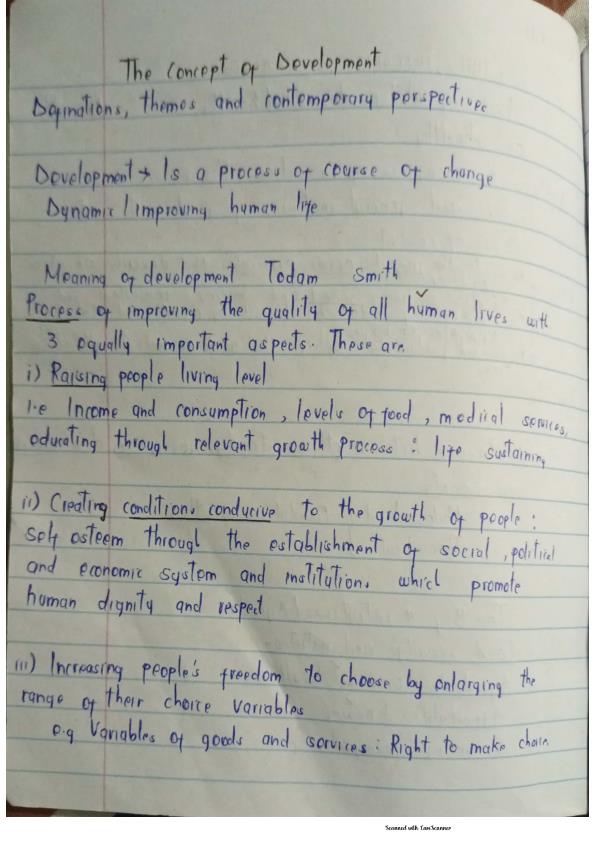 The Concept of Development
Definations, themes and contemporary perspective
Development → Is a process of course of change
Dynamic / improving human life
Meaning of development Todam Smith
Process of improving the quality of all human lives with
3 equally important aspects. These are
i) Raising people living level
i.e Income and consumption, levels of food, medical services,
educating through relevant growth process : life sustaining
ii) Creating conditions conducive to the growth of people :
self esteem through the establishment of social, political
and economic system and institutions which promote
human dignity and respect
iii) Increasing people's freedom to choose by enlarging the
range of their choice variables
e.g Variables of goods and services : Right to make choice
Scanned with CamScanner